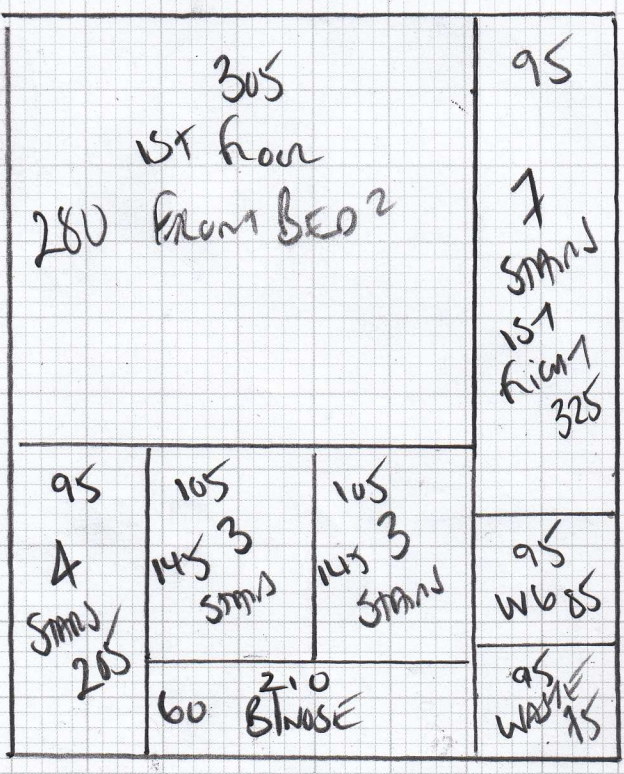 305
1ST FLOOR
280 FRONT BED 2
95
7
STAIRS
1ST
FLIGHT
325
95
4
STAIRS
205
105
145 3
STAIRS
105
145 3
STAIRS
95
W6 85
210
60 B/NOSE
95
WASTE
75